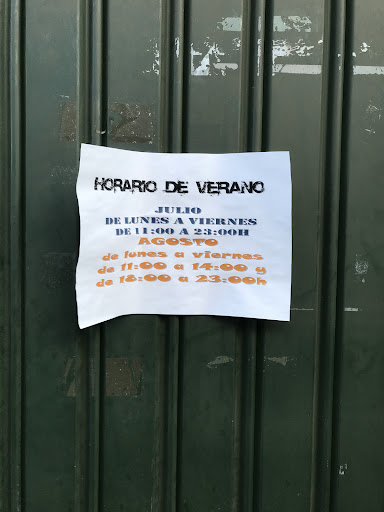 HORARIO DE VERANO
JULIO
DE LUNES A VIERNES
DE 11:00 A 23:00H
AGOSTO
de lunes a viernes
de 11:00 a 14:00 y
de 18:00 a 23:00h